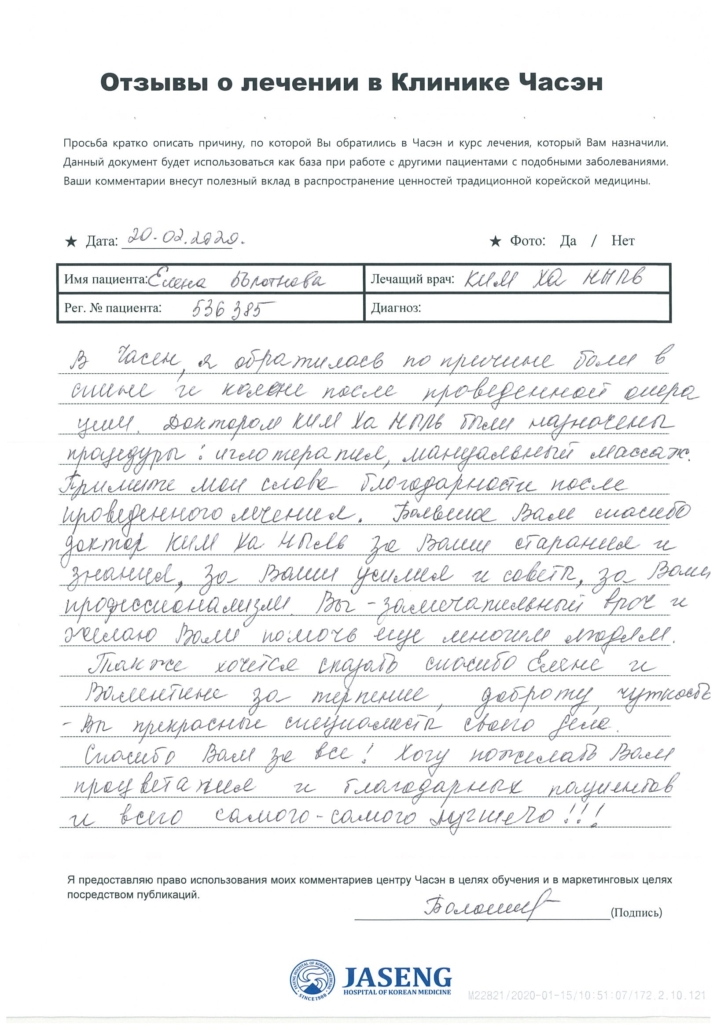 Отзывы о лечении в Клинике Часэн
Просьба кратко описать причину, по которой Вы обратились в Часэн и курс лечения, который Вам назначили.
Данный документ будет использоваться как база при работе с другими пациентами с подобными заболеваниями.
Ваши комментарии внесут полезный вклад в распространение ценностей традиционной корейской медицины.
★ Дата: 20.02.2020. ★ Фото: Да / Нет
Имя пациента: Елена Лечащий врач: КИМ ХА НЫЛЬ
Рег. № пациента: 536385 Диагноз:
В Часен, я обратилась по причине боли в
спине и колене после проведенной опера
ции. Доктором КИМ ХА НЫЛЬ были назначены
процедуры: иглотерапия, мануальный массаж.
Примите мои слова благодарности после
проведенного лечения. Большое Вам спасибо
доктор КИМ ХА НЫЛЬ за Ваши старания и
знания, за Ваши усилия и советы, за Ваш
профессионализм. Вы - замечательный врач и
желаю Вам помочь еще многим людям.
Также хочется сказать спасибо Елене и
Валентине за терпение, доброту, чуткость
- Вы прекрасные специалисты своего дела.
Спасибо Вам за все! Хочу пожелать Вам
процветания и благодарных пациентов
и всего самого-самого лучшего!!!
Я предоставляю право использования моих комментариев центру Часэн в целях обучения и в маркетинговых целях
посредством публикаций.
(Подпись)
JASENG
HOSPITAL OF KOREAN MEDICINE
SINCE 1988
M22821/2020-01-15/10:51:07/172.2.10.121